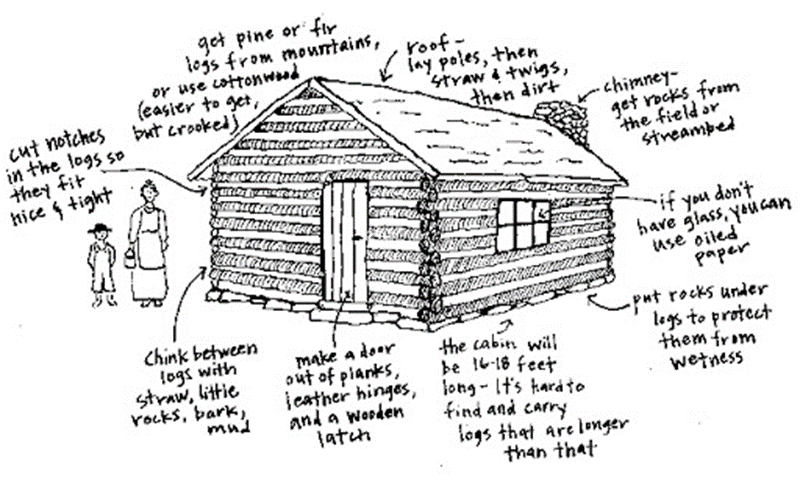 get pine or fir
logs from mountains,
or use cottonwood
(easier to get,
but crooked)
roof-
lay poles, then
straw & twigs,
then dirt
chimney-
get rocks from
the field or
streambed
cut notches
in the logs so
they fit
nice & tight
if you don't
have glass, you can
use oiled
paper
put rocks under
logs to protect
them from
wetness
chink between
logs with
straw, little
rocks, bark,
mud
make a door
out of planks,
leather hinges,
and a wooden
latch
the cabin will
be 16-18 feet
long - It's hard to
find and carry
logs that are longer
than that